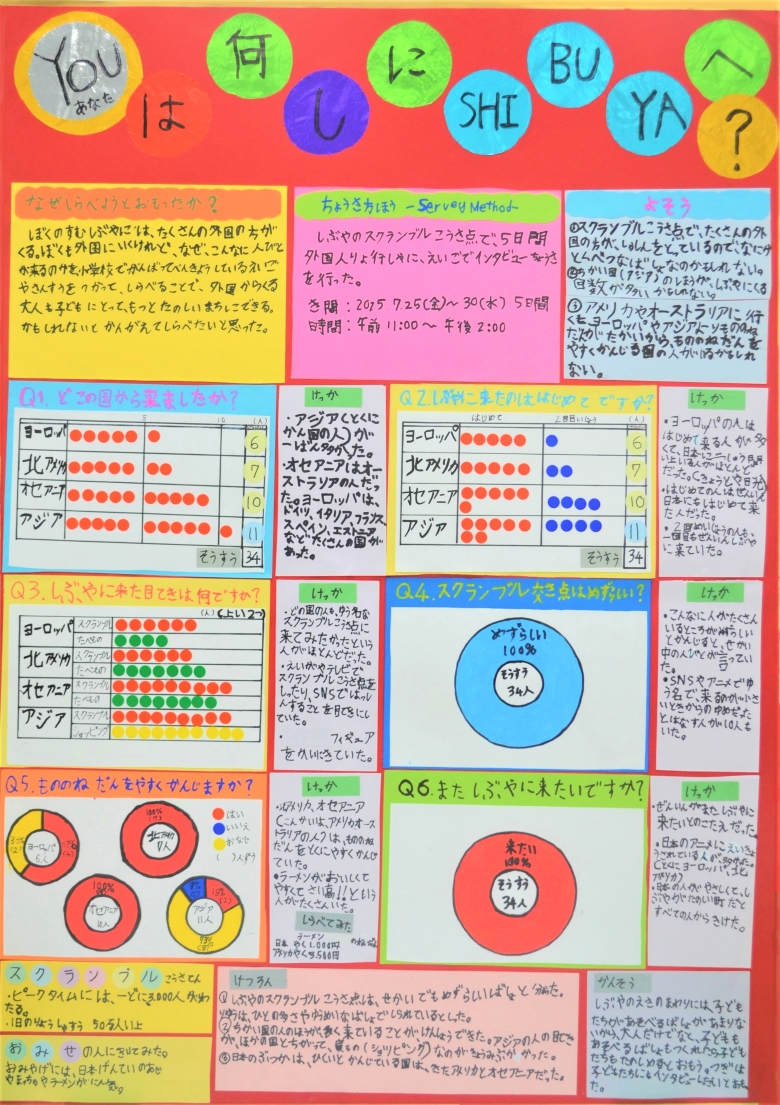 YOU
あなた
は
何
し
に
SHI
BU
YA
へ
?
なぜしらべようとおもったか?
ぼくのすむしぶやくには、たくさんの外国の方が
くる。ぼくも外国にいくけれど、なぜ、こんなに人びと
が来るのかを、小学校でがんばってべんきょうしているえいご
をつかって、しらべることで、外国からくる
大人も子どもにとって、もっとたのしいまちにできる。
かもしれないとかんがえてしらべたいと思った。
ちょうさ方ほう -Servey Method-
しぶやのスクランブルこうさ点で、5日間
外国人りょ行しゃに、えいごでインタビューちょうさ
を行った。
き間:2025 7.25(金)~30(水) 5日間
時間:午前 11:00 ~ 午後 2:00
よそう
①スクランブルこうさ点で、たくさんの外
国の方が、しゃしんをとっているので、なにか
とくべつなばしょなのかもしれない。
②ちかい国(アジア)のほうが、しぶやにくる
回数が多いかもしれない。
③アメリカやオーストラリアに行
くと、ヨーロッパやアジアよりもののね
だんがたかいから、もののねだんを
やすくかんじる国の人がいるかもしれ
ない。
Q1. どこの国から来ましたか?
5 10 (人)
ヨーロッパ 6
北アメリカ 7
オセアニア 10
アジア 11
そうすう 34
けっか
・アジア(とくに
かん国の人)が
一ばん多かった。
・オセアニアはオー
ストラリアの人だっ
た。ヨーロッパは、
ドイツ、イタリア、フランス、
スペイン、エストニア
などたくさんの国が
あった。
Q2. しぶやに来たのははじめてですか?
はじめて 2回目い上 (人)
ヨーロッパ 6
北アメリカ 7
オセアニア 10
アジア 11
そうすう 34
けっか
・ヨーロッパの人は
はじめて来る人が多
くて、日本に二しゅう間
い上いる人がほとんど
だった。(きょうとや日光)
・はじめての人はぜんいん
日本にもはじめて来
た人だった。
・2回めい上の人も、
一回目もぜんいんしぶや
に来ていた。
Q3. しぶやに来た目てきは何ですか?
(人) (上い2つ)
ヨーロッパ スクランブル
たべもの
北アメリカ スクランブル
たべもの
オセアニア スクランブル
たべもの
アジア スクランブル
ショッピング
けっか
・どの国の人も、ゆう名な
スクランブルこうさ点に
来てみたかったという
人がほとんどだった。
・えいがやテレビで
スクランブルこうさ点を
しったり、SNSではっし
んすることを目てきにし
ていた。
・ フィギュア
をかいにきていた。
Q4. スクランブル交さ点はめずらしい?
めずらしい
100%
そうすう
34人
けっか
・こんなに人がたくさん
いるところがめずらしい
とかんじると、せかい
中の人びとが言ってい
た。
・SNSやアニメでゆ
う名で、来るのが小さい
ときからのゆめだった
とはなす人が10人もい
た。
Q5. もののねだんをやすくかんじますか?
ヨーロッパ
6人
100%
(7)
北アメリカ
7人
100%
オセアニア
アジア
11人
はい
いいえ
おなじ
( )人ずう
けっか
・北アメリカ、オセアニア
(こんかいは、アメリカとオース
トラリアの人)は、もののね
だんをとくにやすくかんじ
ていた。
・ラーメンがおいしくて
やすくてさい高!!という人
がたくさんいた。
しらべてみた
ラーメン
日本 やく1,000円
アメリカやく3,500円
のねだん
Q6. またしぶやに来たいですか?
来たい
100%
そうすう
34人
けっか
・ぜんいんがまたしぶやに
来たいとのこたえだった。
・日本のアニメにえいきょ
うされている人が多かった。
(とくにヨーロッパ、北
アメリカ)
・日本の人がやさしくて、し
ぶやがたのしい町だと
すべての人からきけた。
スクランブルこうさてん
・ピークタイムには、一どに3,000人がわ
たる。
・1日のりようしゃすう 50万人い上
おみせの人にきいてみた。
おみやげには、日本げんていのおかし
やまっちゃやラーメンがにん気。
けつろん
①しぶやのスクランブルこうさ点は、せかいでもめずらしいばしょと分かった。
りゆうは、ひとの多さやゆうめいなばしょでしられているとした。
②ちかい国の人のほうが、多く来ていることがけんしょうできた。アジアの人の目てき
が、ほかの国とちがって、買もの(ショッピング)なのがきょうみぶかかった。
③日本のぶっかは、ひくいとかんじている国は、きたアメリカとオセアニアだった。
かんそう
しぶやのえきのまわりには、子ども
たちがあそべるばしょがあまりな
いから、大人だけでなく、子どもも
あそべるばしょもつくれたら子ども
たちもたのしめるとおもう。つぎは
子どもたちにもインタビューしたいとおもっ
た。